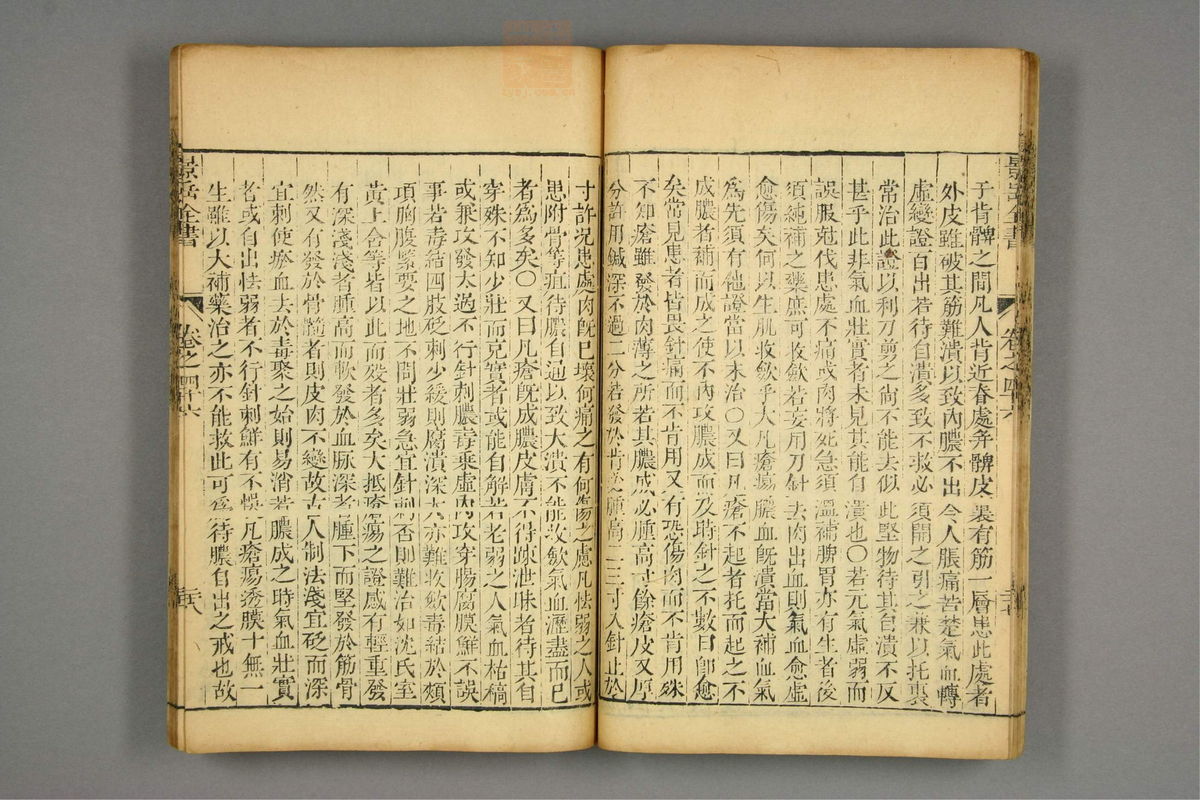 景岳全書
卷之四十六
于肯髀之間凡人肯近脊處并髀皮裏有筋一層患此處者
外皮雖破其筋難潰以致內膿不出令人脹痛苦楚氣血轉
虛變證百出若待自潰多致不救必須開之引之兼以托裏
常治此證以利刀剪之尚不能去似此堅物待其自潰不反
甚乎此非氣血壯實者未見其能自潰也○若元氣虛弱而
誤服尅伐患處不痛或肉將死急須溫補脾胃亦有生者後
須純補之藥庶可收斂若妄用刀針去肉出血則氣血愈虛
愈傷矣何以生肌收斂乎大凡瘡瘍膿血旣潰當大補血氣
爲先須有他證當以末治○又曰凡瘡不起者托而起之不
成膿者補而成之使不內攻膿成而及時針之不數日卽愈
矣常見患者皆畏針痛而不肯用又有恐傷肉而不肯用殊
不知瘡雖發於肉薄之所若其膿成必腫高寸餘瘡皮又厚
分許用鍼深不過二分若發於肯必腫高二三寸入針止於
寸許况患處肉旣已壞何痛之有何傷之慮凡怯弱之人或
患附骨等疽待膿自通以致大潰不能收斂氣血瀝盡而已
者爲多矣○又曰凡瘡旣成膿皮膚不得疎泄昧者待其自
穿殊不知少壯而充實者或能自解若老弱之人氣血枯槁
或兼攻發太過不行針刺膿毒乘虛內攻穿腸腐膜鮮不誤
事若毒結四肢砭刺少緩則腐潰深大亦難收斂毒結於頰
項胸腹緊要之地不問壯弱急宜針刺否則難治如沈氏室
黃上舍等皆以此而歿者多矣大抵瘡瘍之證感有輕重發
有深淺淺者腫高而軟發於血脉深者腫下而堅發於筋骨
然又有發於骨髓者則皮肉不變故古人制法淺宜砭而深
宜刺使瘀血去於毒聚之始則易消若膿成之時氣血壯實
者或自出怯弱者不行針刺鮮有不悞凡瘡瘍透膜十無一
生雖以大補藥治之亦不能救此可爲待膿自出之戒也故
景岳全書
卷之四十六
三十八